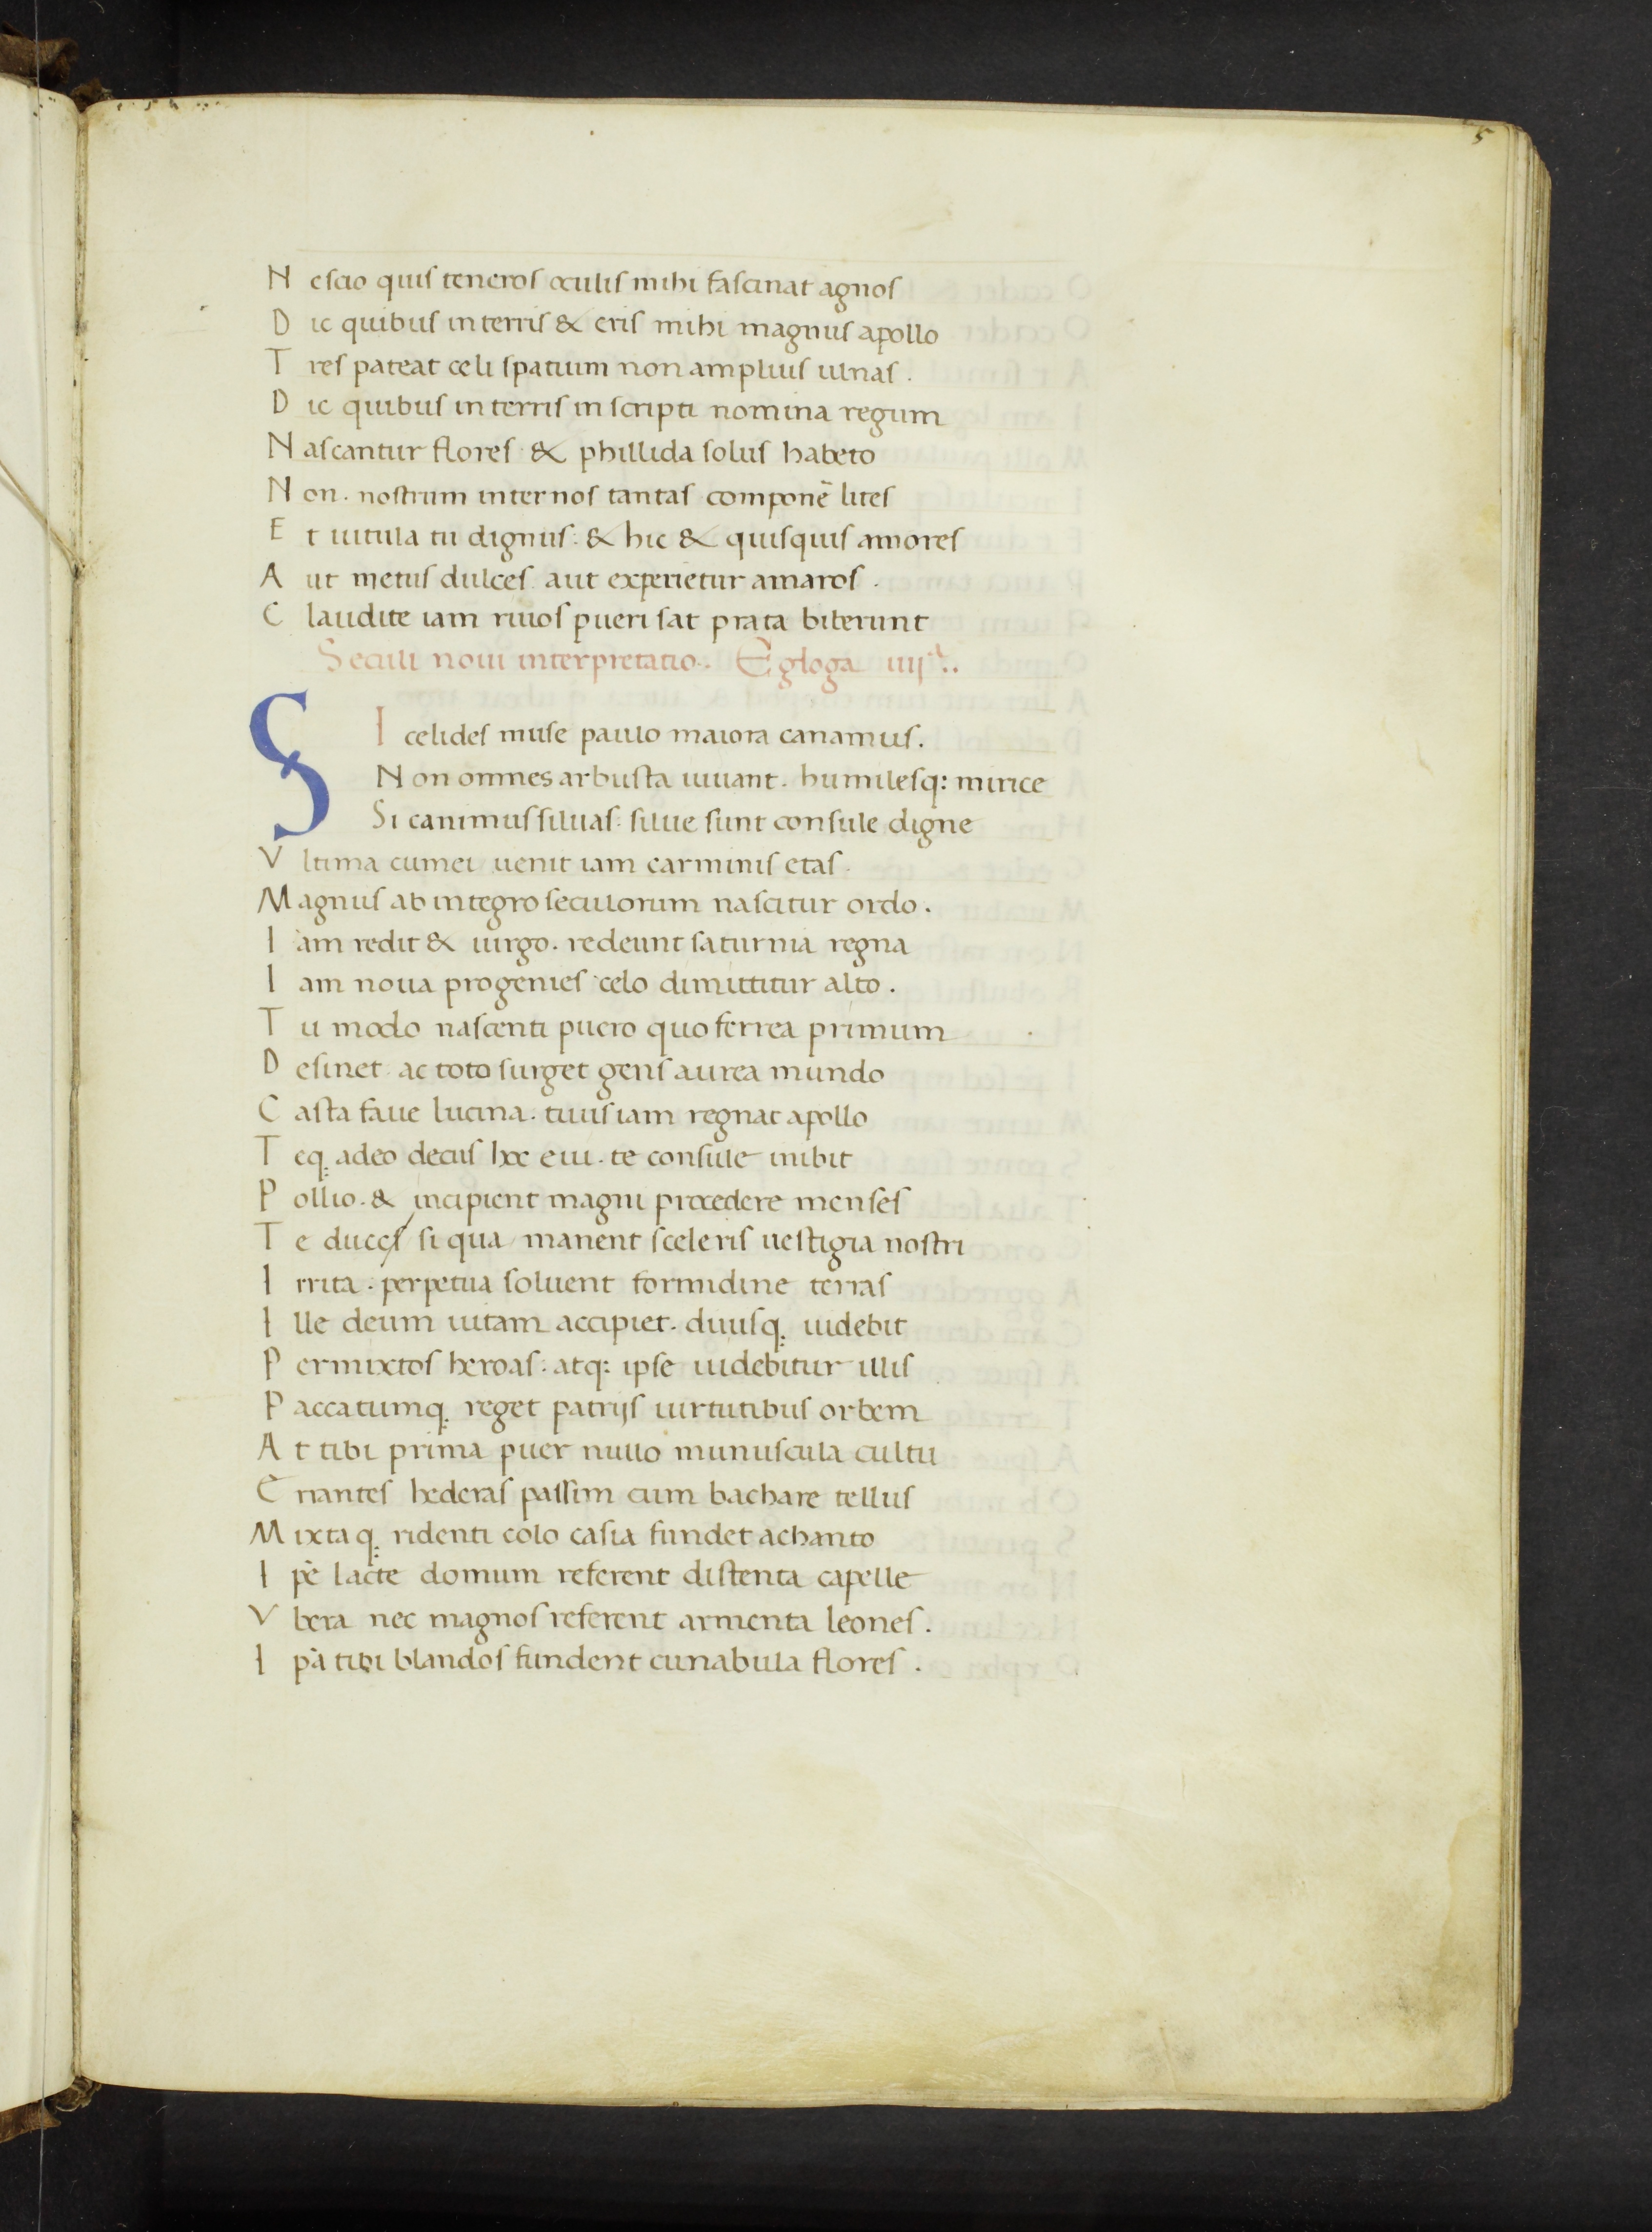 5
Nescio quis teneros oculis mihi fascinat agnos
Dic quibus in terris & eris mihi magnus apollo
Tres pateat celi spatium non amplius ulnas.
Dic quibus in terris inscripti nomina regum
Nascantur flores & phillida solus habeto
Non. nostrum inter nos tantas componē lites
Et uitula tu dignus: & hic & quisquis amores
Aut metus dulces. aut experietur amaros.
Claudite iam riuos pueri sat prata biberunt
Seculi noui interpretatio. Egloga iiijᵃ..
SIcelides muse paulo maiora canamus.
Non omnes arbusta iuuant. humilesq: mirice
Si canimus siluas: silue sunt consule digne
Vltima cumei uenit iam carminis etas.
Magnus ab integro seculorum nascitur ordo.
Iam redit & uirgo. redeunt saturnia regna
Iam noua progenies celo dimittitur alto.
Tu modo nascenti puero quo ferrea primum
Desinet. ac toto surget gens aurea mundo
Casta faue lucina. tuus iam regnat apollo
Teq; adeo decus hoc eui. te consule inibit
Pollio. & incipient magni procedere menses
Te duces si qua manent sceleris uestigia nostri
Irrita. perpetua soluent formidine terras
Ille deum uitam accipiet. diuisq; uidebit
Permixtos heroas. atq: ipse uidebitur illis
Paccatumq; reget patrijs uirtutibus orbem
At tibi prima puer nullo munuscula cultu
Errantes hederas passim cum bachare tellus
Mixtaq; ridenti colo casia fundet achanto
Ipē lacte domum referent distenta capelle
Vbera nec magnos referent armenta leones.
Ipā tibi blandos fundent cunabula flores.